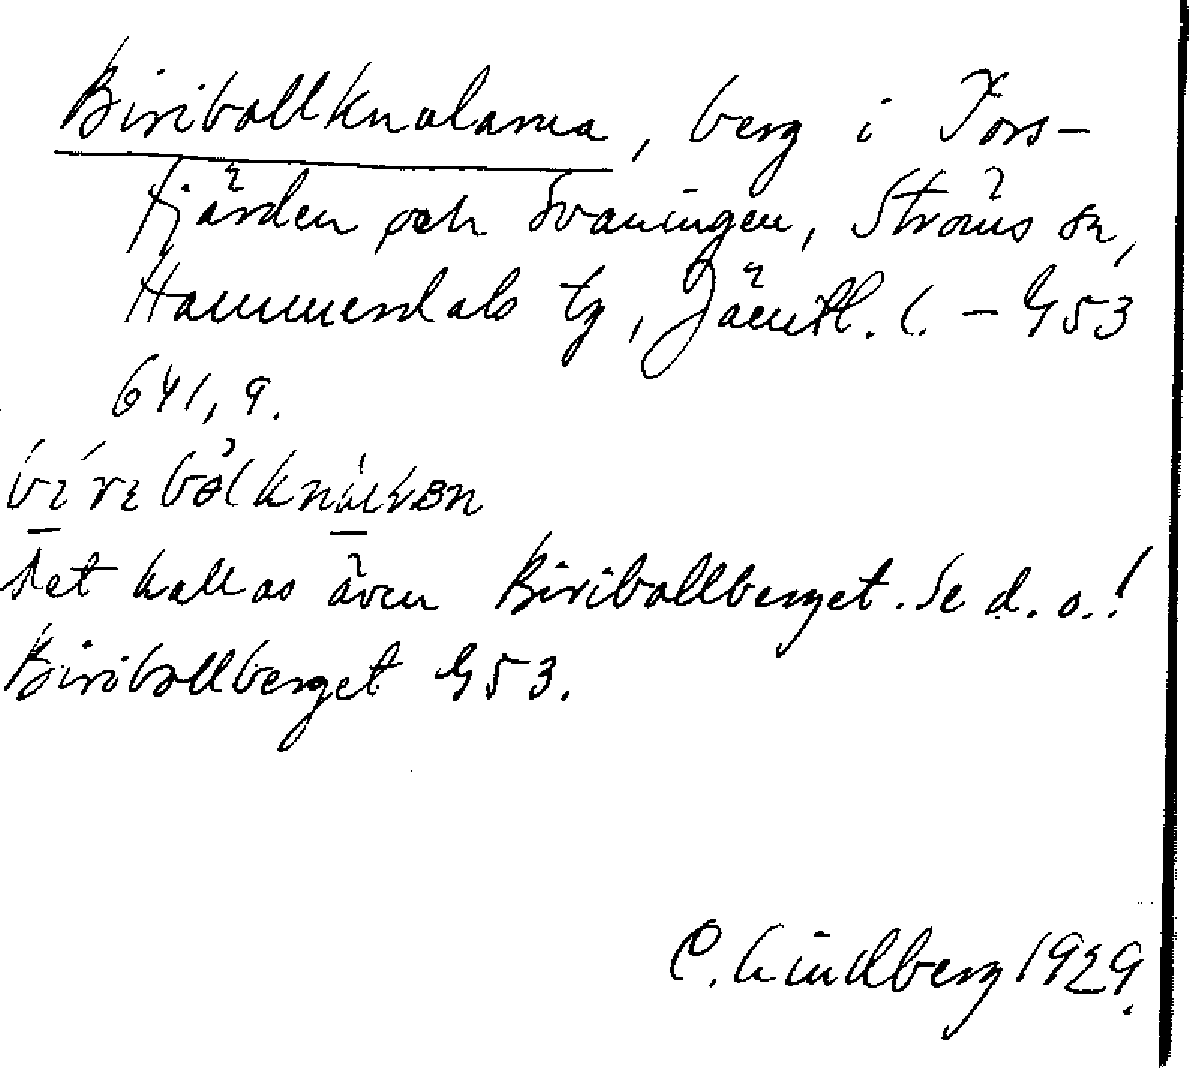 Biribollknolarna, berg i Fors-
fjärden och Svaningen, Ströms sn,
Hammerdals tg, Jämtl. l. – G53
641, 9.
det kallas även Biribollberget. Se d. o.!
Biribollberget G53.
C. Lindberg 1929.